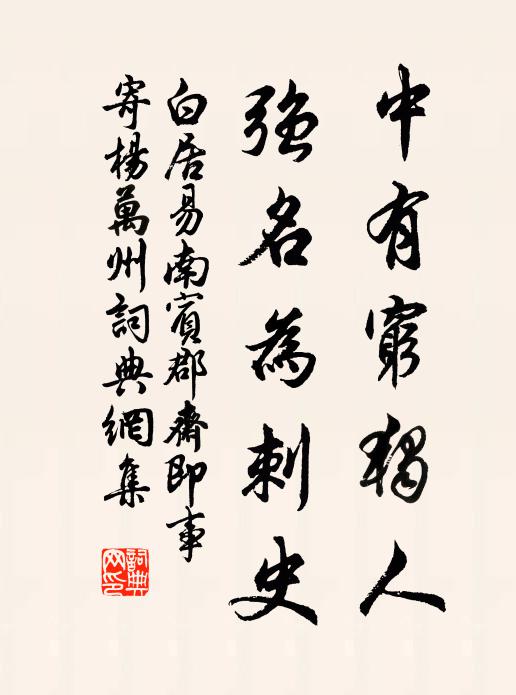 中有窮獨人
強名為刺史
白居易南賓郡齋即事
寄楊萬州詞典網集
詞典
网印